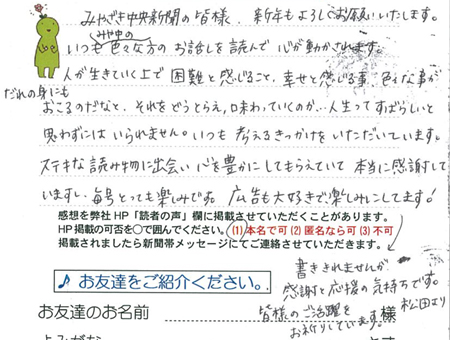 みやざき中央新聞の皆様、新年もよろしくお願いいたします。
みや中の
いつも色々な方のお話しを読んで心が動かされます。
人が生きていく上で困難と感じること、幸せと感じる事、色々な事が
だれの身にも
おこるのだなと、それをどうとらえ、味わっていくのか…人生ってすばらしいと
思わずにはいられません。いつも考えるきっかけをいただいています。
ステキな読み物に出会い心を豊かにしてもらえていて本当に感謝して
いますし、毎号とっても楽しみです。広告も大好きで楽しみにしてます!
感想を弊社HP「読者の声」欄に掲載させていただくことがあります。
HP掲載の可否を○で囲んでください。(1)本名で可(2)匿名なら可(3)不可
掲載されましたら新聞帯メッセージにてご連絡させていただきます。
書ききれませんが
感謝と応援の気持ちです。
松田より
♪お友達をご紹介ください。
皆様のご活躍を
お祈りしています。
お友達のお名前
様